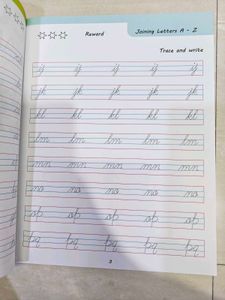 Reward Joining Letters A - Z
Trace and write
ij ij ij ij ij
jk jk jk jk jk
kl kl kl kl kl
lm lm lm lm lm
mn mn mn mn mn
no no no no no
op op op op op
pq pq pq pq pq
2